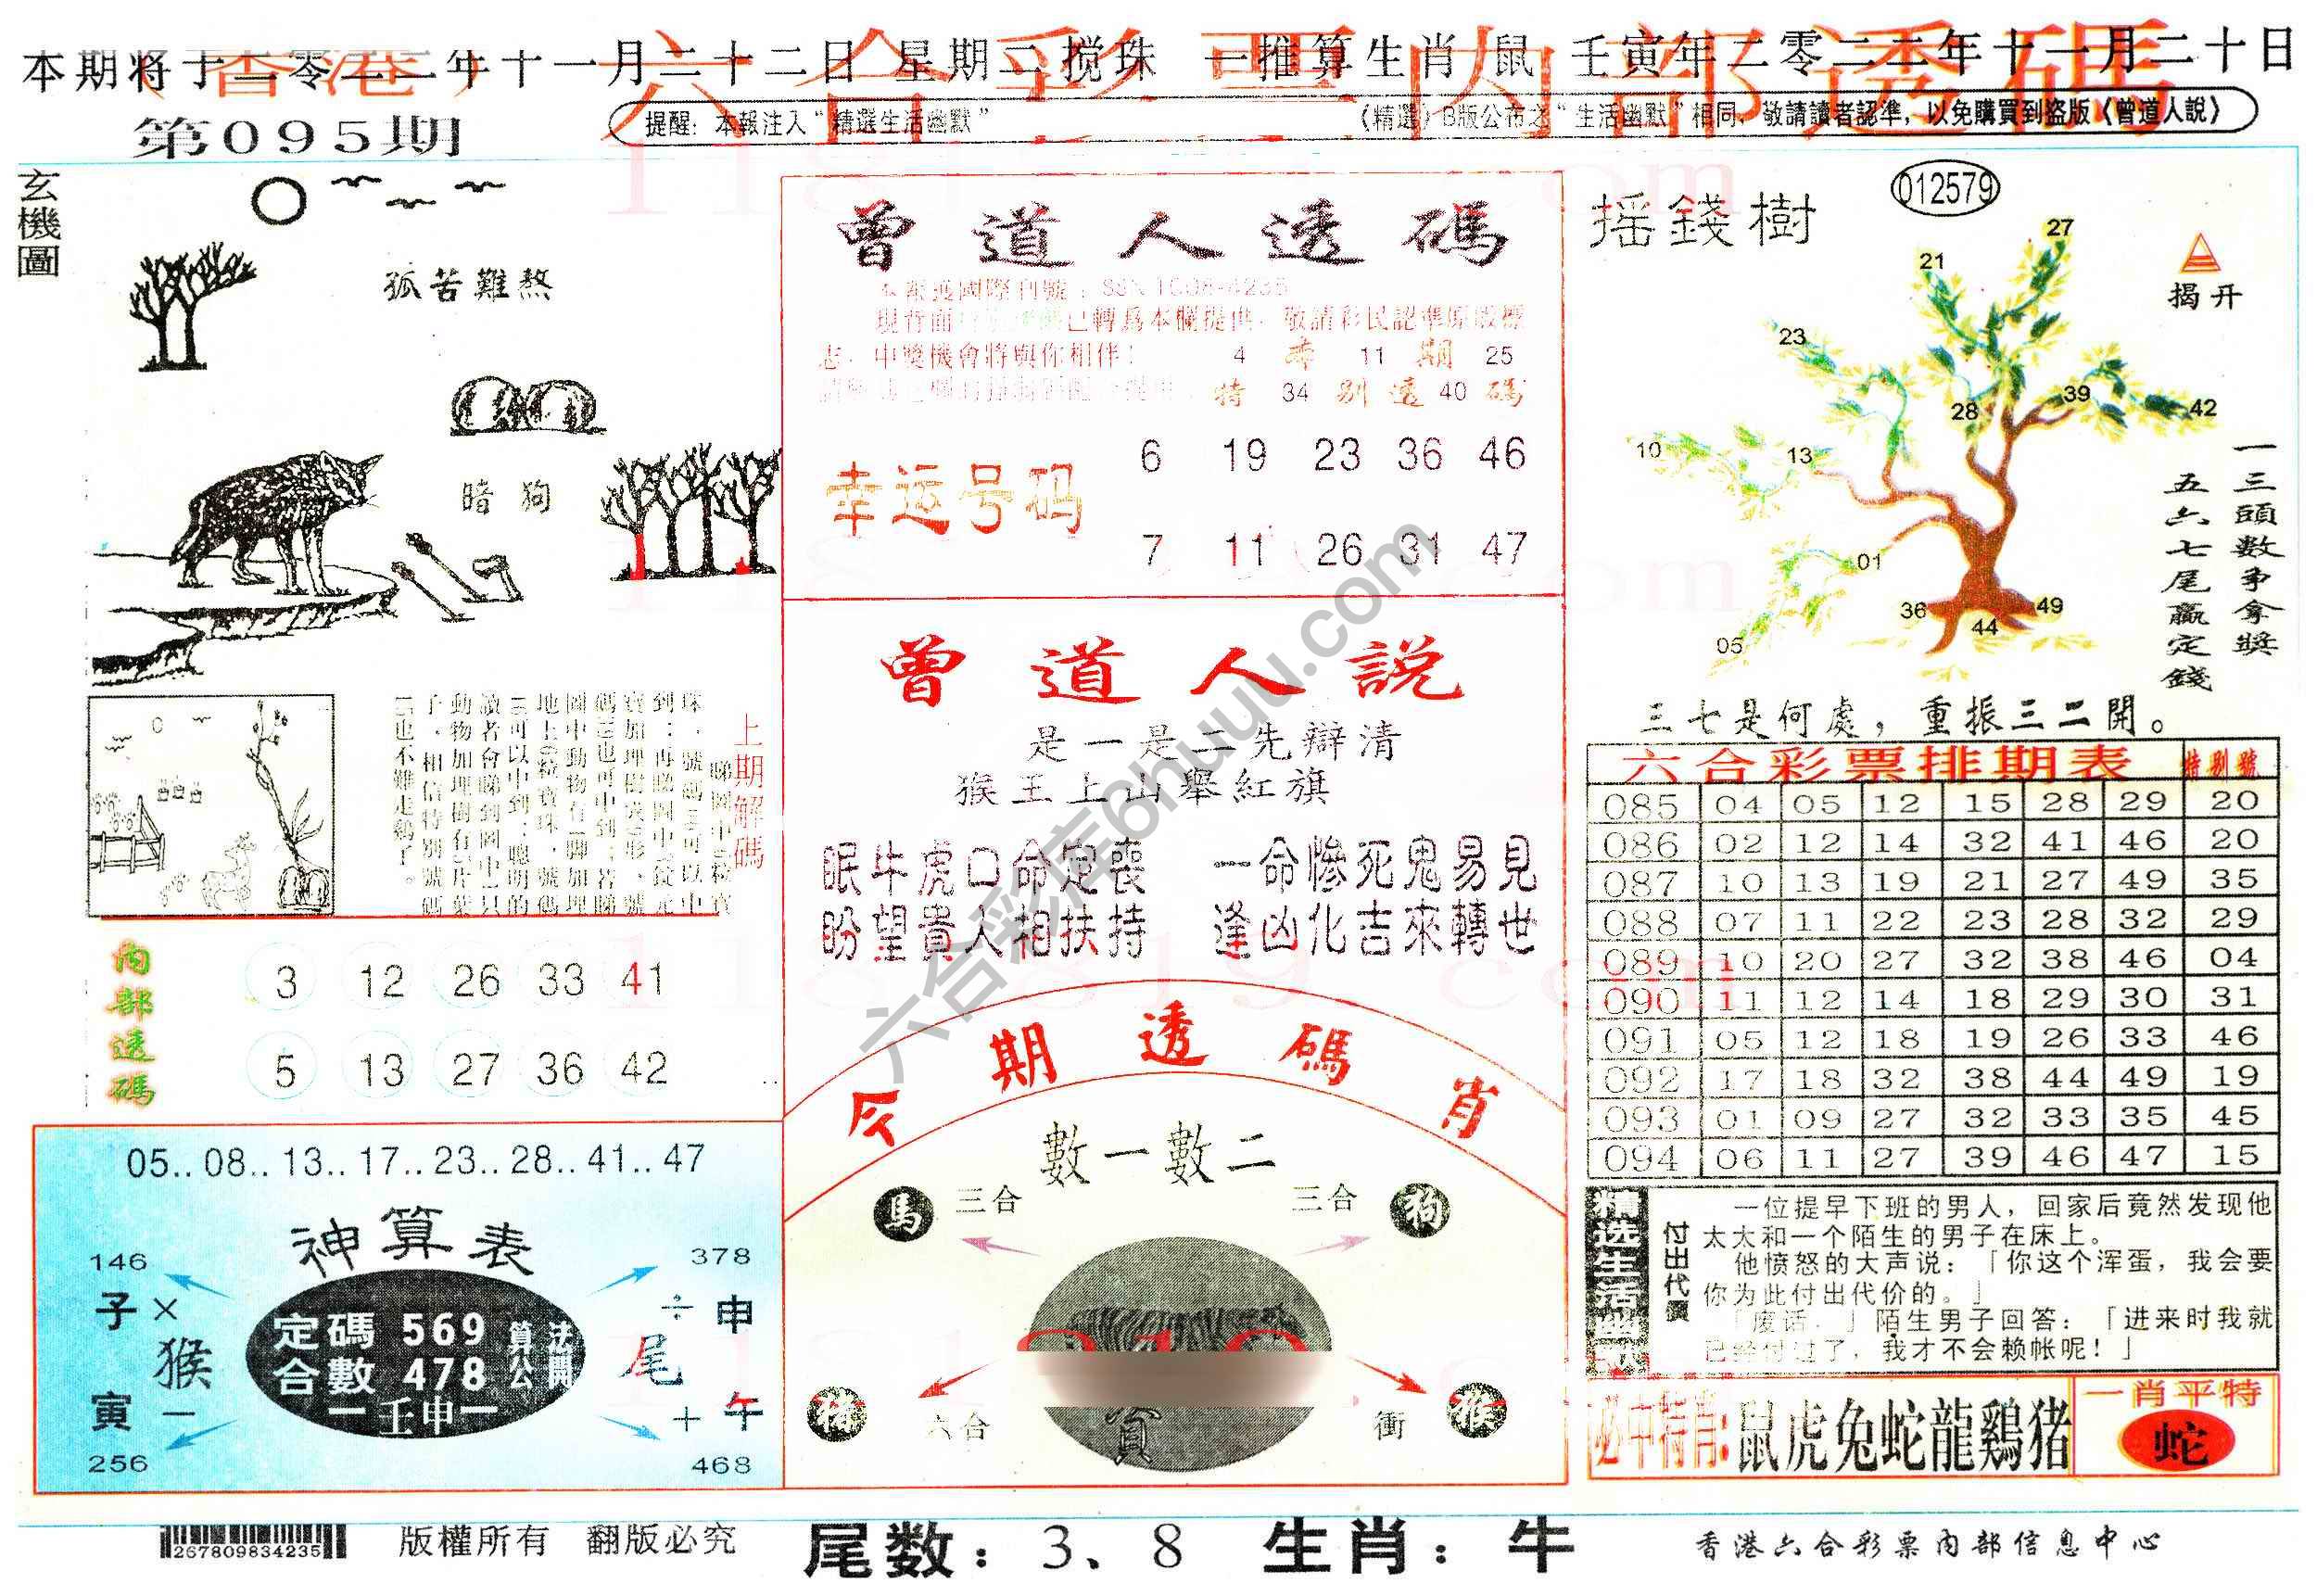 (香港) 六合彩票内部透碼
本期将于二零二二年十一月二十二日 星期二搅珠 一推算生肖 鼠 壬寅年二零二二年十一月二十日
第095期
提醒：本報注入“精選生活幽默”
《精選》B版公布之“生活幽默”相同，敬請讀者認準，以免購買到盗版《曾道人說》
玄機圖
孤苦難熬
暗狗
上期解碼
内部透碼
3 12 26 33 41
5 13 27 36 42
05..08..13..17..23..28..41..47
神算表
146
378
子 ×
÷ 申
猴
尾
寅 一
+ 午
256
468
定碼 569
合數 478
算法公開
一壬申一
曾道人透碼
已轉爲本欄提供，敬請彩民認準原版標
志，中獎機會將與你相伴！
4 本 11 期 25
特 34 别 透 40 碼
幸运号码
6 19 23 36 46
7 11 26 31 47
曾道人説
是一是二先辯清
猴王上山舉紅旗
眠牛虎口命定喪 一命慘死鬼易見
盼望貴人相扶持 逢凶化吉來轉世
今期透碼肖
數一數二
馬 三合
三合 狗
猪 六合
衝 猴
六合彩库6huuu.com
摇錢樹
012579
揭开
27
21
23
39
28
42
10
13
01
36
49
44
05
一三頭數争拿獎
五六七尾贏定錢
三七是何處，重振三二開。
六合彩票排期表 特别號
085 04 05 12 15 28 29 20
086 02 12 14 32 41 46 20
087 10 13 19 21 27 49 35
088 07 11 22 23 28 32 29
089 10 20 27 32 38 46 04
090 11 12 14 18 29 30 31
091 05 12 18 19 26 33 46
092 17 18 32 38 44 49 19
093 01 09 27 32 33 35 45
094 06 11 27 39 46 47 15
精选生活幽默
付出代價
一位提早下班的男人，回家后竟然发现他
太太和一个陌生的男子在床上。
他愤怒的大声说：「你这个浑蛋，我会要
你为此付出代价的。」
「废话，」陌生男子回答：「进来时我就
已经付过了，我才不会赖帐呢！」
必中特肖：鼠虎兔蛇龍鷄猪
一肖平特
蛇
267809834235
版權所有 翻版必究
尾数：3、8 生肖：牛
香港六合彩票内部信息中心